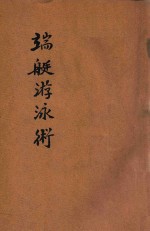 端艇游泳術